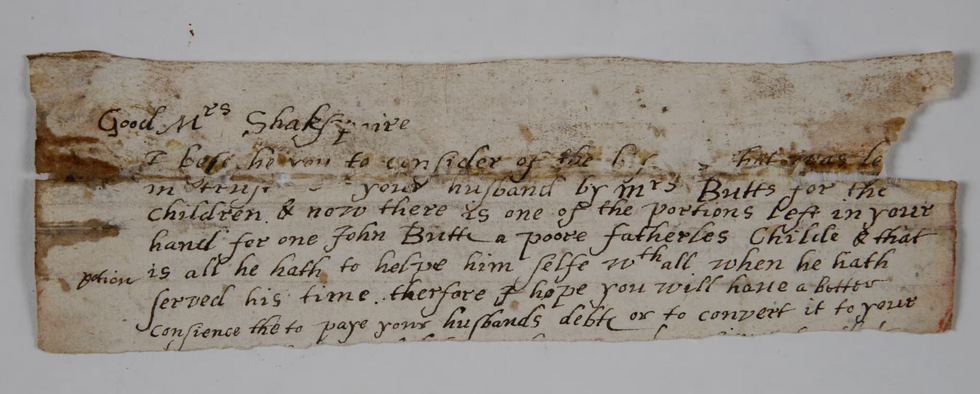 Good Mrs Shakspaire
I bese he you to consider of the that was le
in trust your husband by Mrs Butts for the
Children & now there is one of the portions left in your
hand for one John Butte a poore fatherles Childe & that
potion is all he hath to helpe him selfe wthall when he hath
served his time therfore I hope you will have a better
Consience the to paye your husbands debte or to convert it to your